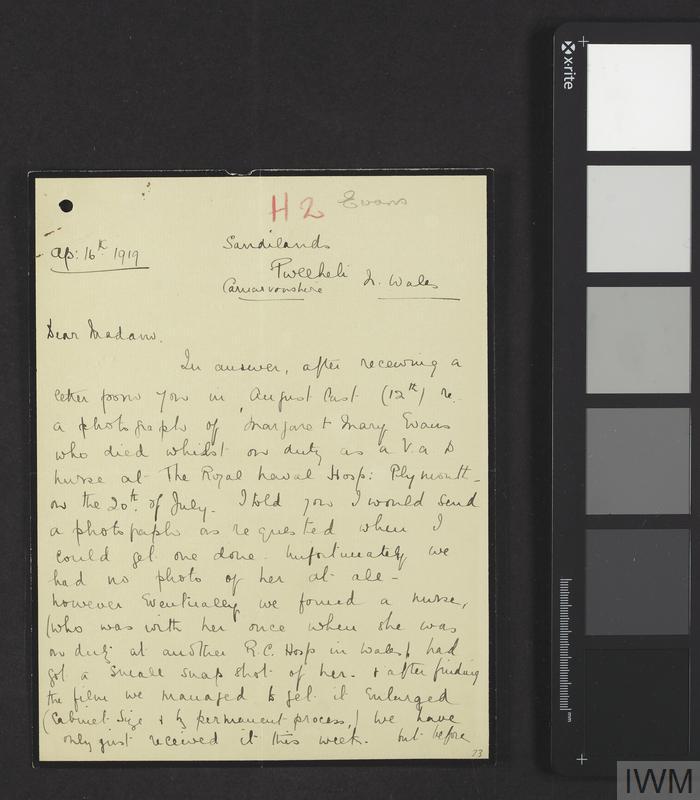 H2 Evans
Ap: 16th 1919
Sandilands
Pwllheli N. Wales
Carnarvonshire
Dear Madam.
In answer, after receiving a
letter from you in August last (12th) re.
a photograph of Margaret Mary Evans
who died whilst on duty as a V.a D
nurse at The Royal Naval Hosp: Plymouth -
on the 20th of July. I told you I would send
a photograph as requested when I
could get one done. Unfortunately we
had no photo of her at all -
however Eventually we found a nurse,
(who was with her once when she was
on duty at another R.C. Hosp in Wales) had
got a small snap shot of her. & after finding
the film we managed to get it Enlarged
(Cabinet size & by permanent process,) we have
only just received it this week. but before
73
x-rite
mm
IWM